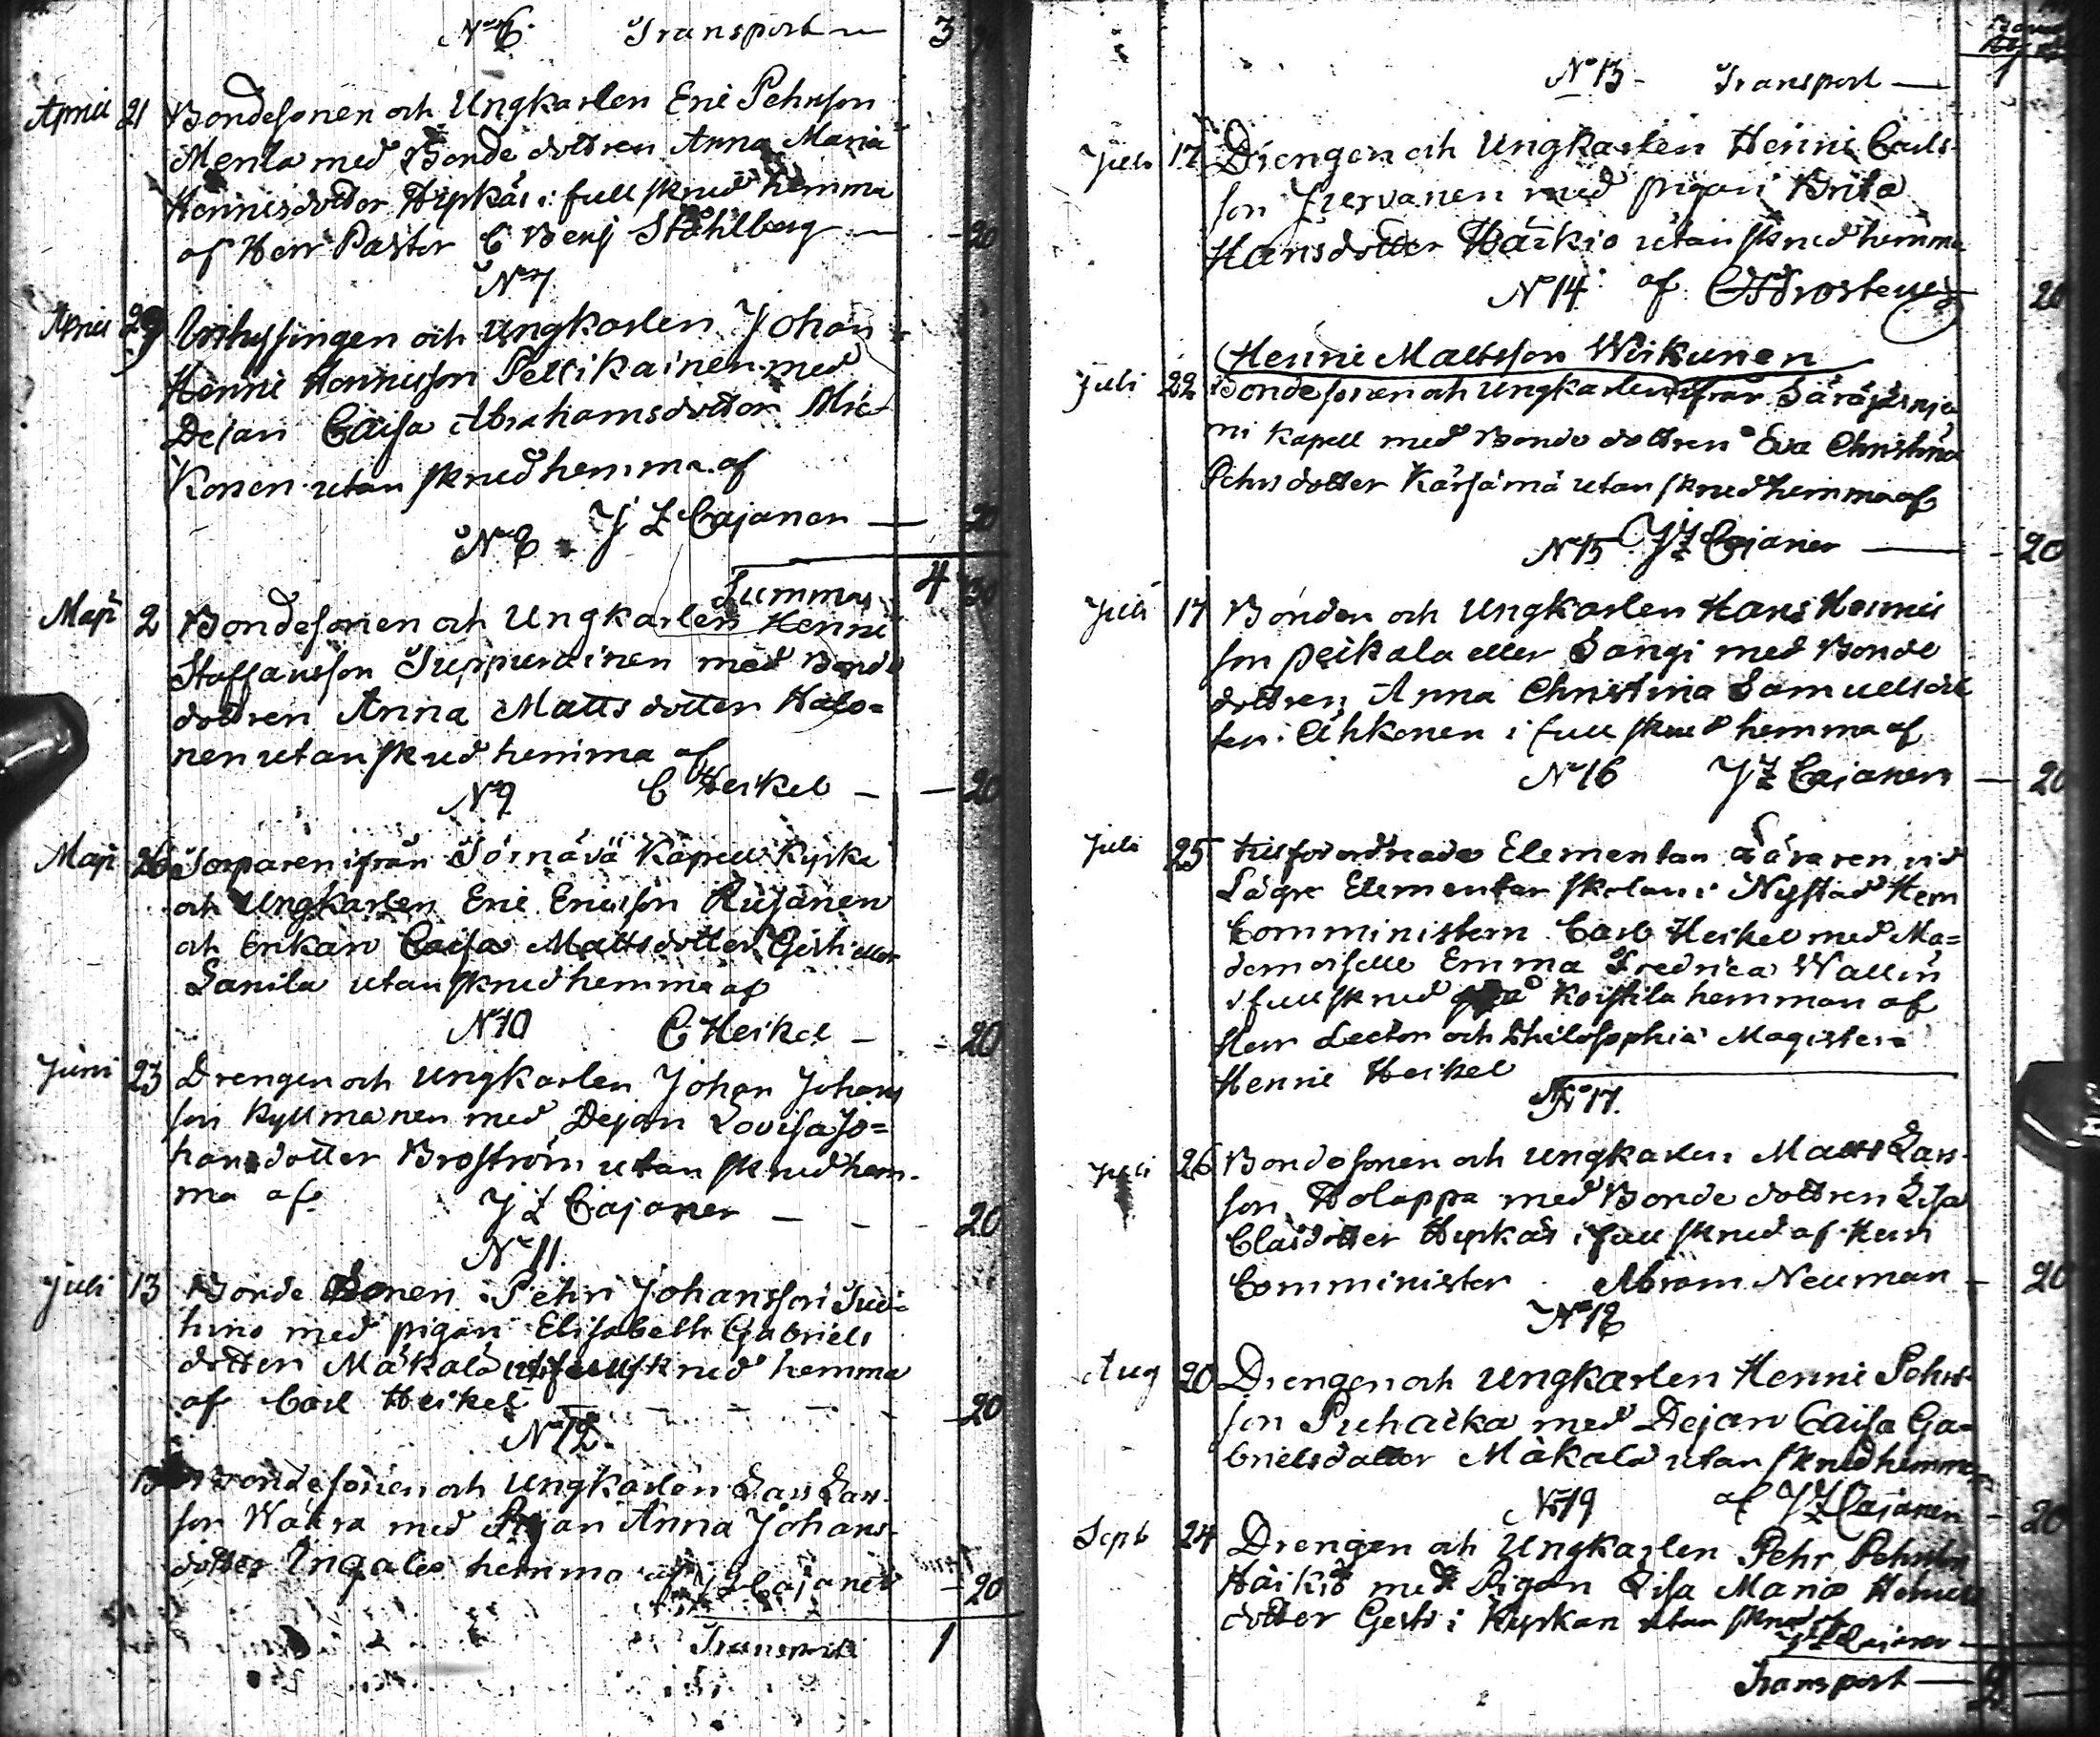 No 6. Transport — 3
April 21 Bondesonen och Ungkarlen Eric Pehrson
Menla med Bonde dottren Anna Maria
Henricsdotter Hyrkäs i full skrud hemma
af Herr Pastor C Benj Ståhlberg — 20
No 7
April 29 Inhysingen och Ungkarlen Johan
Henric Henricsson Pellikainen med
Dejan Caisa Abrahamsdotter Mic-
konen utan skrud hemma af
J Z Cajanen — 20
No 8
Summa 4
Maji 2 Bondesonen och Ungkarlen Henric
Staffansson Juppurainen med Bonde
dottren Anna Matts dotter Halo=
nen utan skrud hemma af
No 9 C Heikel — 20
Maji 26 Torparen ifrån Törnävä Kapell Kyrka
och Ungkarlen Eric Ericsson
och Enkan Caisa Mattsdotter Gerts eller
Lanila utan skrud hemma af
No 10 C Heikel — 20
Juni 23 Drengen och Ungkarlen Johan Johans
son Kyllmänen med Dejan Lovisa Jo=
hansdotter Broström utan skrud hem-
ma af J Z Cajaner — 20
No 11.
Juli 13 Bonde Sonen Pehr Johansson
med pigan Elisabeth Gabriels
dotter Mäkälä i full skrud hemma
af Carl Heikel — 20
No 12.
13 Bondesonen och Ungkarlen Lars Lars
son Waara med Anna Johans-
dotter Ingalo hemma af J Z Cajaner — 20
Transport 1
No 13 - Transport — 1
Juli 17 Drengen och Ungkarlen Henric Carls-
son med pigan Brita
Hansdotter Häikiö utan skrud hemma
No 14 af 20
Henric Mattsson Wirkunen
Juli 22 Bondesonen och Ungkarlen ifrån Säräjsnje
mi Kapell med Bonde dottren Eva Christina
Pehrsdotter Kärsämä utan skrud hemma af
No 15 J Z Cajaner — 20
Juli 17 Bonden och Ungkarlen Hans Henric
son Peikala eller Sangi med Bonde
dottren Anna Christina Samuelsdot
ter Ahkonen i full skrud hemma af
No 16 J Z Cajaner — 20
Juli 25 tillförordnade Elementar Läraren vid
Lägre Elementar skolan i Nystad Herr
Comministern Carl Heikel med Ma=
demoiselle Emma Fredrica Wallin
i full skrud på Koistila hemman af
Herr Lector och Philosophiä Magistern
Henric Heikel
No 17.
Juli 26 Bondesonen och Ungkarlen Matts Lars
son Holappa med Bonde dottren Lisa
Clasdotter Hyrkäs i full skrud af Herr
Comminister Abram Neuman — 20
No 18
Aug 20 Drengen och Ungkarlen Henric Pehrs-
son Puhakka med Dejan Caisa Ga=
brielsdotter Mäkälä utan skrud hemma
No 19 af J Z Cajanen — 20
Sept 24 Drengen och Ungkarlen Pehr Pehrson
Häikiö med Pigan Lisa Maria Henrics
dotter Gerts i Kyrkan utan skrud af
J Z Cajaner —
Transport — 2